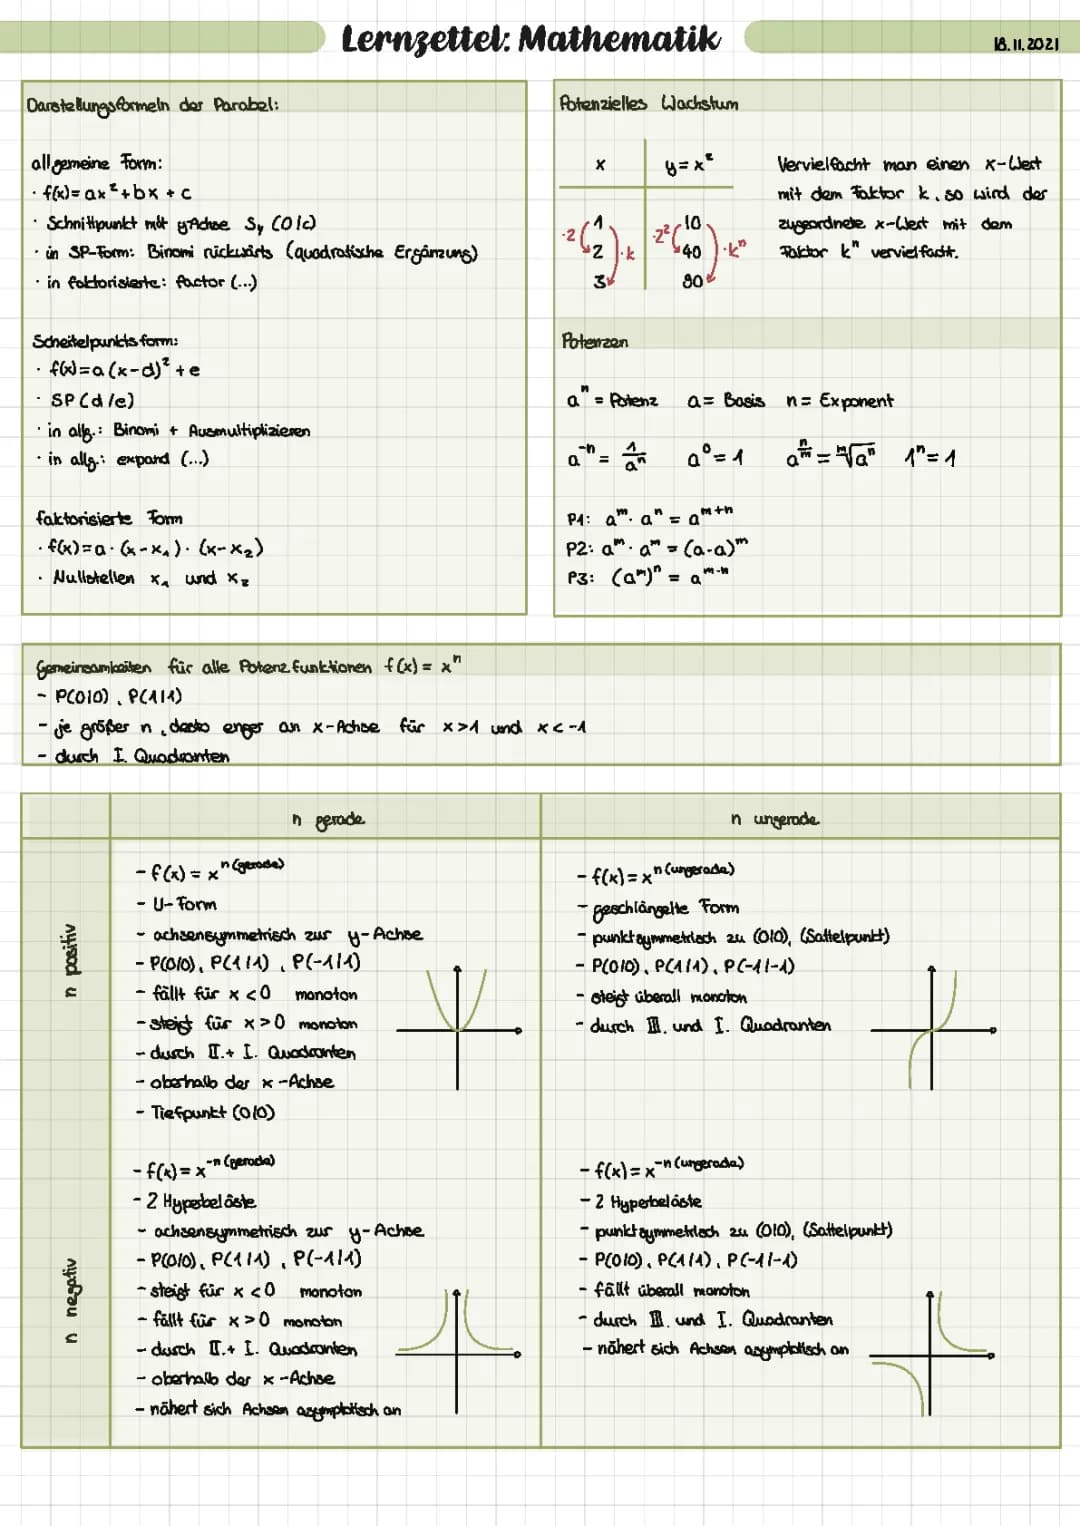 Lernzettel: Mathematik
18.11.2021
Darstellungsformeln der Parabel:
allgemeine Form:
· f(x)= ax² + bx + c
· Schnittpunkt mit y-Achse Sy (0/c)
· in SP-Form: Binomi rückwärts (quadratische Ergänzung)
· in faktorisierte: factor (...)
Scheitelpunktsform:
· f(x)= a (x-d)² + e
· SP (d/e)
· in allg.: Binomi + Ausmultiplizieren
· in allg.: expand (...)
faktorisierte Form
· f(x)= a · (x - x₁) · (x - x₂)
· Nullstellen x₁ und x₂
Potenzielles Wachstum
x y = x²
1 10
2 40
3 90
·2 ·k ·2² ·kⁿ
Vervielfacht man einen x-Wert
mit dem Faktor k, so wird der
zugeordnete x-Wert mit dem
Faktor kⁿ vervielfacht.
Potenzen
aⁿ = Potenz a = Basis n = Exponent
a⁻ⁿ = 1/aⁿ a⁰ = 1 a^(n/m) = ᵐ√aⁿ 1ⁿ = 1
P1: aᵐ · aⁿ = aᵐ⁺ⁿ
P2: aᵐ · aᵐ = (a·a)ᵐ
P3: (aᵐ)ⁿ = aᵐ·ⁿ
Gemeinsamkeiten für alle Potenzfunktionen f(x) = xⁿ
- P(0|0), P(1|1)
- je größer n, desto enger an x-Achse für x>1 und x<-1
- durch I. Quadranten
n gerade
n ungerade
n positiv
- f(x) = x^n (gerade)
- U-Form
- achsensymmetrisch zur y-Achse
- P(0|0), P(1|1), P(-1|1)
- fällt für x<0 monoton
- steigt für x>0 monoton
- durch II.+ I. Quadranten
- oberhalb der x-Achse
- Tiefpunkt (0|0)
- f(x) = x^n (ungerade)
- geschlängelte Form
- punktsymmetrisch zu (0|0), (Sattelpunkt)
- P(0|0), P(1|1), P(-1|-1)
- steigt überall monoton
- durch III. und I. Quadranten
n negativ
- f(x) = x^-n (gerade)
- 2 Hyperbeläste
- achsensymmetrisch zur y-Achse
- P(0|0), P(1|1), P(-1|1)
- steigt für x<0 monoton
- fällt für x>0 monoton
- durch II.+ I. Quadranten
- oberhalb der x-Achse
- nähert sich Achsen asymptotisch an
- f(x) = x^-n (ungerade)
- 2 Hyperbeläste
- punktsymmetrisch zu (0|0), (Sattelpunkt)
- P(0|0), P(1|1), P(-1|-1)
- fällt überall monoton
- durch III. und I. Quadranten
- nähert sich Achsen asymptotisch an